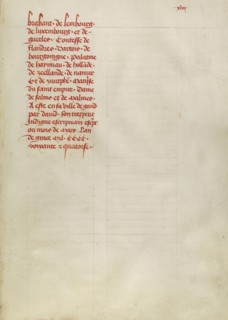 xlvij
brabant · de lembourg ·
de luxembourg · et de ·
gueldres · Contesse de
flandres · Dartois · de
bourgoingne · Palatine
de haynnau · de hollāde ·
de zeellande · de namur
et de zutphē · marquise
du saint empire · Dame
de salins et de malines ·
A este en sa ville de gand
par david · son trespetit
Indigne escripuain escript
ou mois de mars · Lan
de grace mil · CCCC ·
soixante & quatorse ·